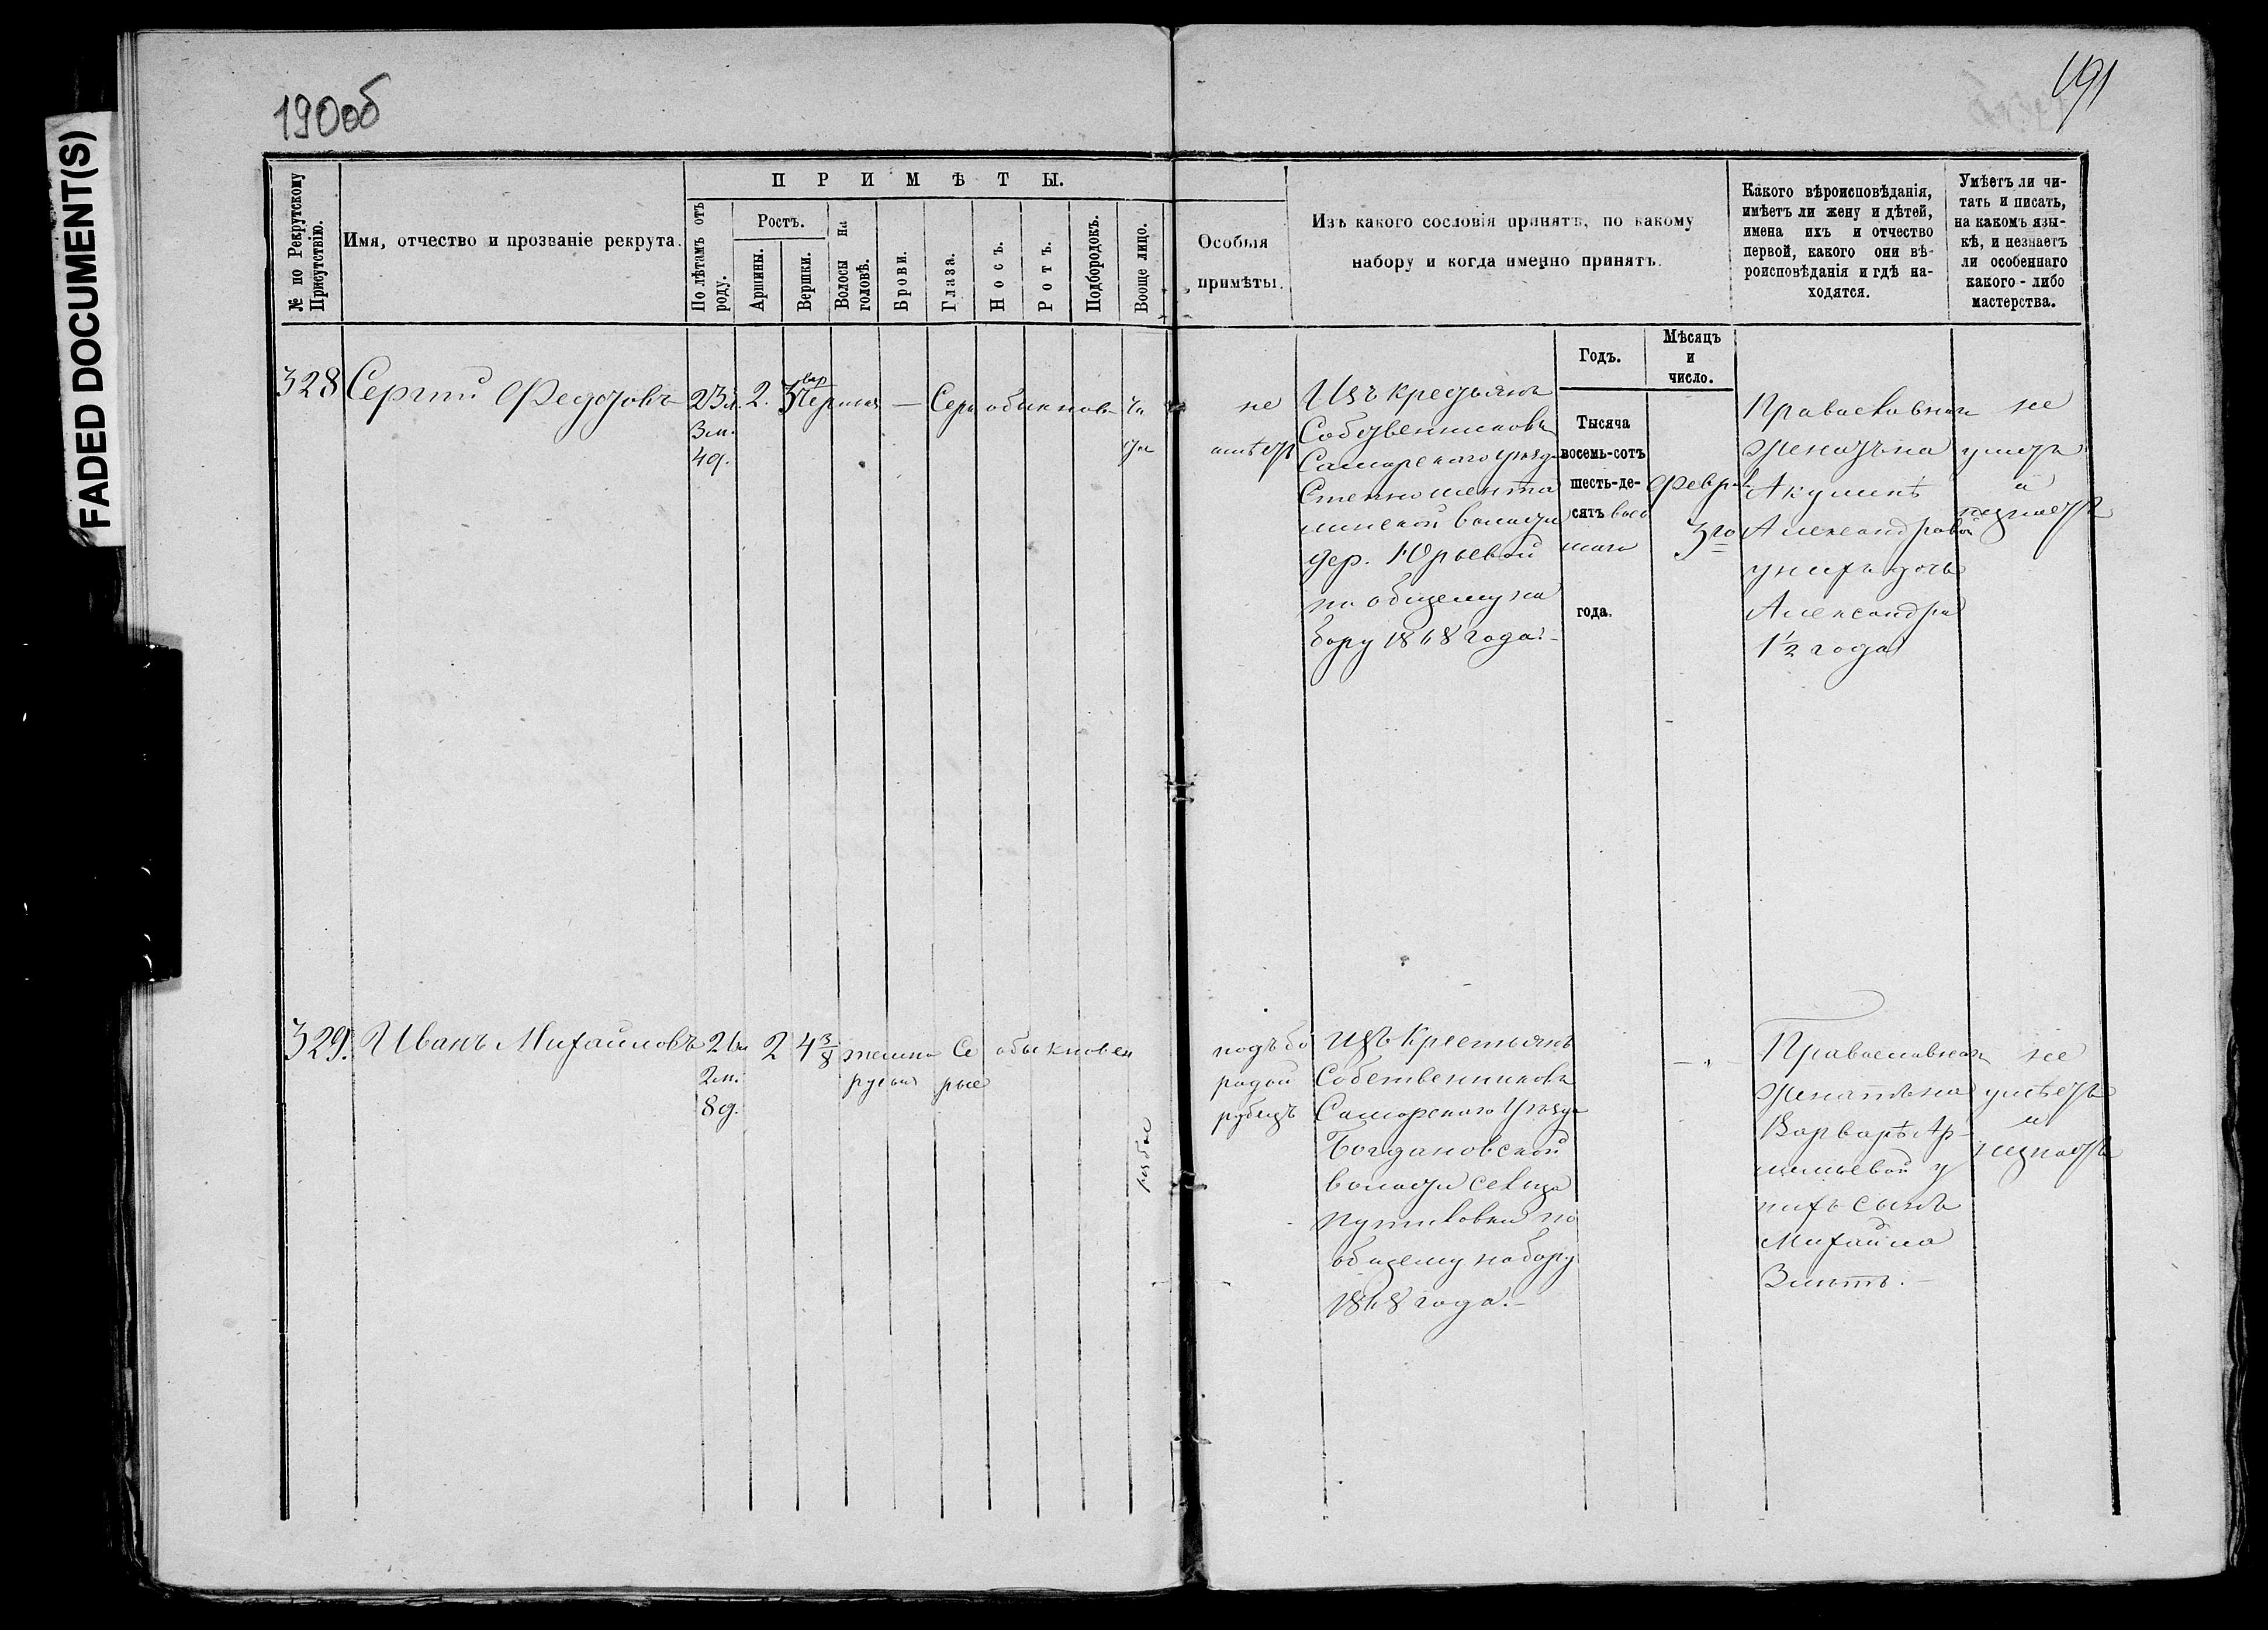 190об
191
FADED DOCUMENT(S)
№ по Рекрутскому
Присутствію.
Имя, отчество и прозваніе рекрута.
ПРИМѢТЫ.
По лѣтамъ отъ
роду.
Ростъ.
Аршины.
Вершки.
Волосы на
головѣ.
Брови.
Глаза.
Носъ.
Ротъ.
Подбородокъ.
Вооще лицо.
Особыя
примѣты.
Изъ какого сословія принятъ, по какому
набору и когда именно принятъ.
Какого вѣроисповѣданія,
имѣетъ ли жену и дѣтей,
имена ихъ и отчество
первой, какого они вѣ-
роисповѣданія и гдѣ на-
ходятся.
Умѣетъ ли чи-
тать и писать,
на какомъ язы-
кѣ, и незнаетъ
ли особеннаго
какого-либо
мастерства.
Годъ.
Мѣсяцъ
и
число.
328
Сергѣй Федотовъ
23 л.
3 м.
4 д.
2.
3
—
обыкнов
не
имѣетъ
Изъ крестьянъ
Собственниковъ
Самарскаго уѣзда
волости
дер. Юрьевой
по общему на
бору 1868 года.—
Тысяча
восемь-сотъ
шесть-де-
сятъ
года.
Февр.
3го
Православнаго
женатъ на
Акулинѣ
Александровой
у нихъ дочь
Александра
1½ года
не
умѣетъ
и
незнаетъ
329.
Иванъ Михайловъ
2 м.
8 д.
2
4 3/8
темно
русые
Се
рые
обыкновен
рябое
подъ бо
родой
рубецъ
Изъ крестьянъ
Собственниковъ
Самарскаго Уѣзда
Богдановской
волости сельца
по
общему набору
1868 года.—
—"
Православнаго
женатъ на
Варварѣ Ар-
у
нихъ сынъ
Михайла
3 лѣтъ.—
не
умѣетъ
и
незнаетъ